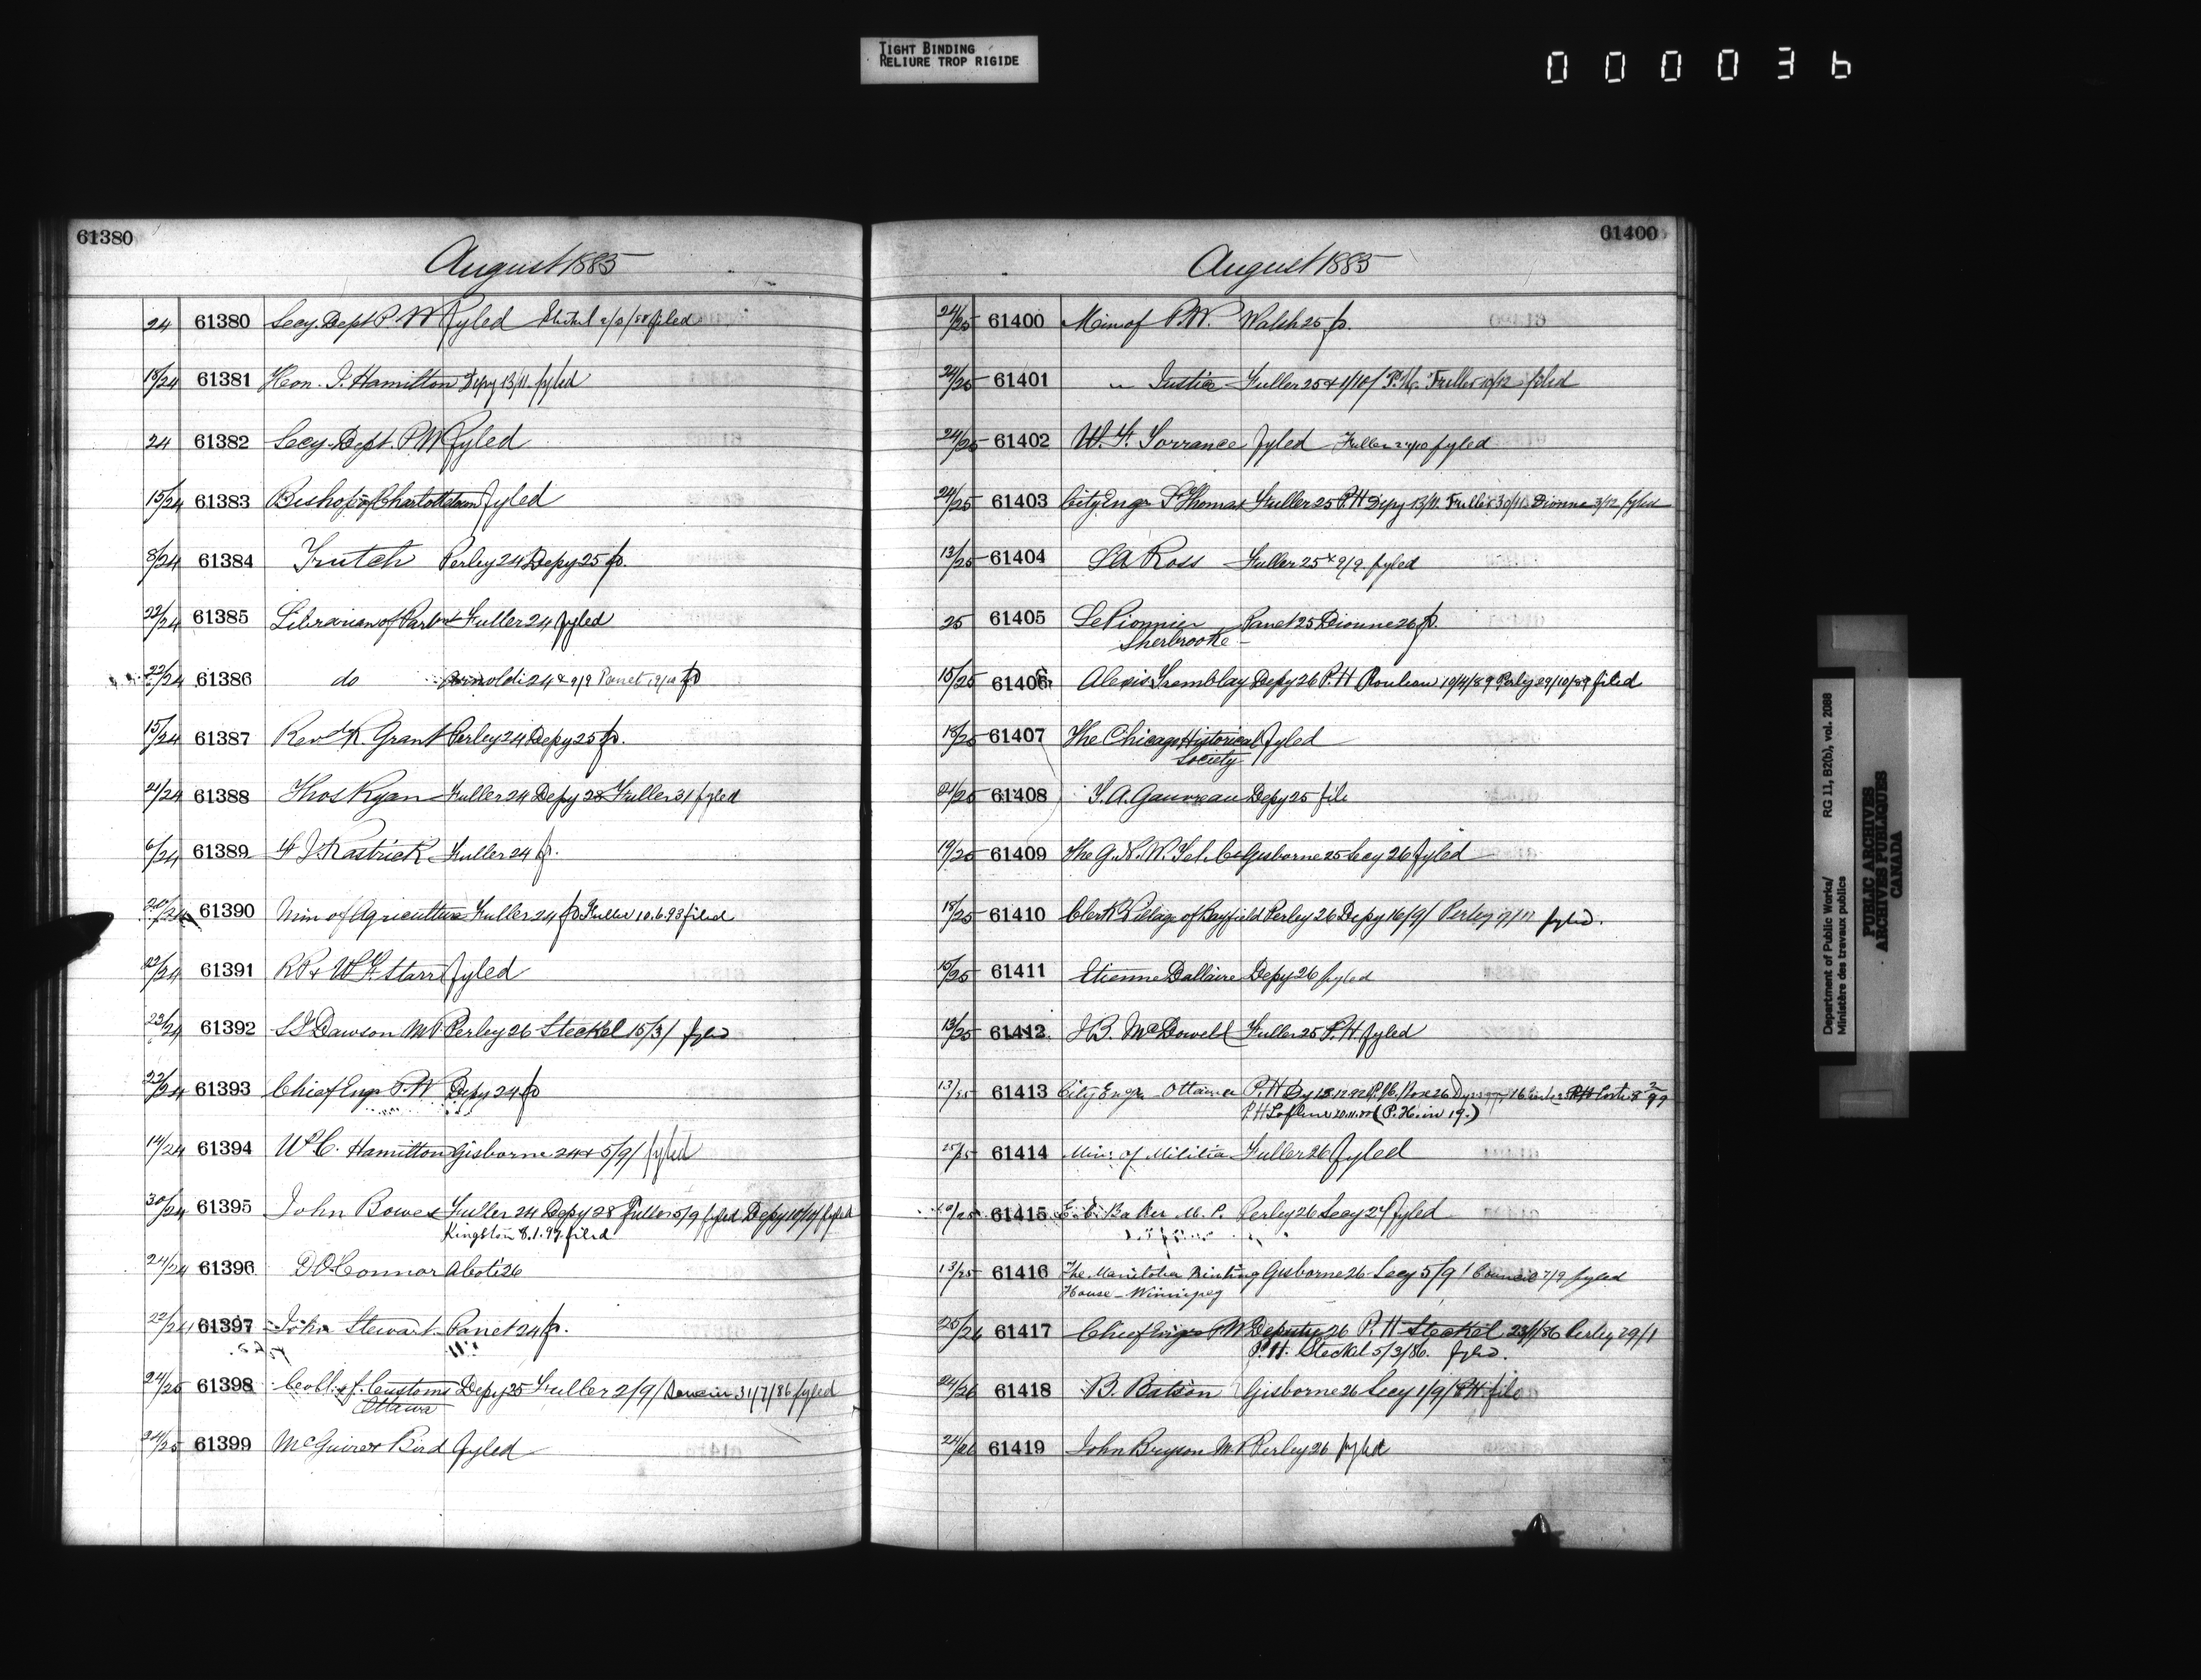 TIGHT BINDING
RELIURE TROP RIGIDE
000036
61380
August 1885
24 61380 Secy. Dept P. W fyled filed
18/24 61381 Hon. J. Hamilton Depy 13/11 fyled
24 61382 Secy. Dept. P. W fyled
15/24 61383 Bishop of Charlottetown fyled
8/24 61384 Trutch Perley 24 Depy 25 p.
22/24 61385 Librarian of Parlmt Fuller 24 fyled
22/24 61386 do Arnoldi 24 & 9/9 Panet
15/24 61387 Revd K. Grant Perley 24 Depy 25 p.
21/24 61388 Thos Ryan Fuller 24 Depy 28 Fuller 31 fyled
6/24 61389 F J. Rastrick Fuller 24 p.
61390 Min of Agriculture Fuller 24 p Fuller 10.6.93 filed
61391 R P & W F. Starr fyled
23/24 61392 S J Dawson MP Perley 26 Steckel 15/3/ fyled
22/24 61393 Chief Engr P. W Depy 24 p
14/24 61394 W C. Hamilton Gisborne 24 & 5/9/ fyled
30/24 61395 John Bowes Fuller 24 Depy 28 Fuller 5/9 fyled Depy fyled
Kingston 8.1.97. filed
24/24 61396 D O'Connor Abot: 26
22/24 61397 John Stewart Panet 24 p.
24/25 61398 Coll. of Customs Depy 25 Fuller 2/9/ 31/7/86 fyled
Ottawa
24/25 61399 McGuire & Bird fyled
61400
August 1885
24/25 61400 Min of P.W. Walsh 25 p.
24/25 61401 " Justice Fuller 25 & 1/10/ P.H. Fuller 10/12 fyled
24/25 61402 W. F. Torrance fyled Fuller fyled
24/25 61403 City Engr St Thomas Fuller 25 P.H Depy 13/11. Fuller 30/11 Dionne 3/12 fyled
13/25 61404 S A Ross Fuller 25 & 9/9 fyled
25 61405 Le Pionnier Panet 25 Dionne 26 p.
Sherbrooke
15/25 61406 Alexis Tremblay Depy 26 P.H Rouleau 10/4/89 Perley 29/10/89 filed
18/25 61407 The Chicago Historical fyled
Society
21/25 61408 T. A. Gauvreau Depy 25 file
19/25 61409 The G. N. W. Tel. Co Gisborne 25 Secy 26 fyled
18/25 61410 Clerk Village of Bayfield Perley 26 Depy 16/9/ Perley fyled.
15/25 61411 Etienne Dallaire Depy 26 fyled
13/25 61412 J B. McDowell Fuller 25 P.H. fyled
13/25 61413 City Engr Ottawa P.H
(P. H. in 19.)
25/25 61414 Min. of Militia Fuller 26 fyled
61415 E. C. Baker M. P. Perley 26 Secy 27 fyled
13/25 61416 The Manitoba Printing Gisborne 26 Secy 5/9/ Council 7/9 fyled
House - Winnipeg
25/26 61417 Chief Engr PW Deputy 26 P. H Steckel 23/1/86 Perley 29/1
P. H. Steckel 5/3/86. fyled.
24/26 61418 B. Batson Gisborne 26 Secy 1/9/ P.H. file
24/26 61419 John Bryson M. P Perley 26 fyled
Department of Public Works/
Ministère des travaux publics
RG 11, B2(b), vol. 2088
PUBLIC ARCHIVES
ARCHIVES PUBLIQUES
CANADA